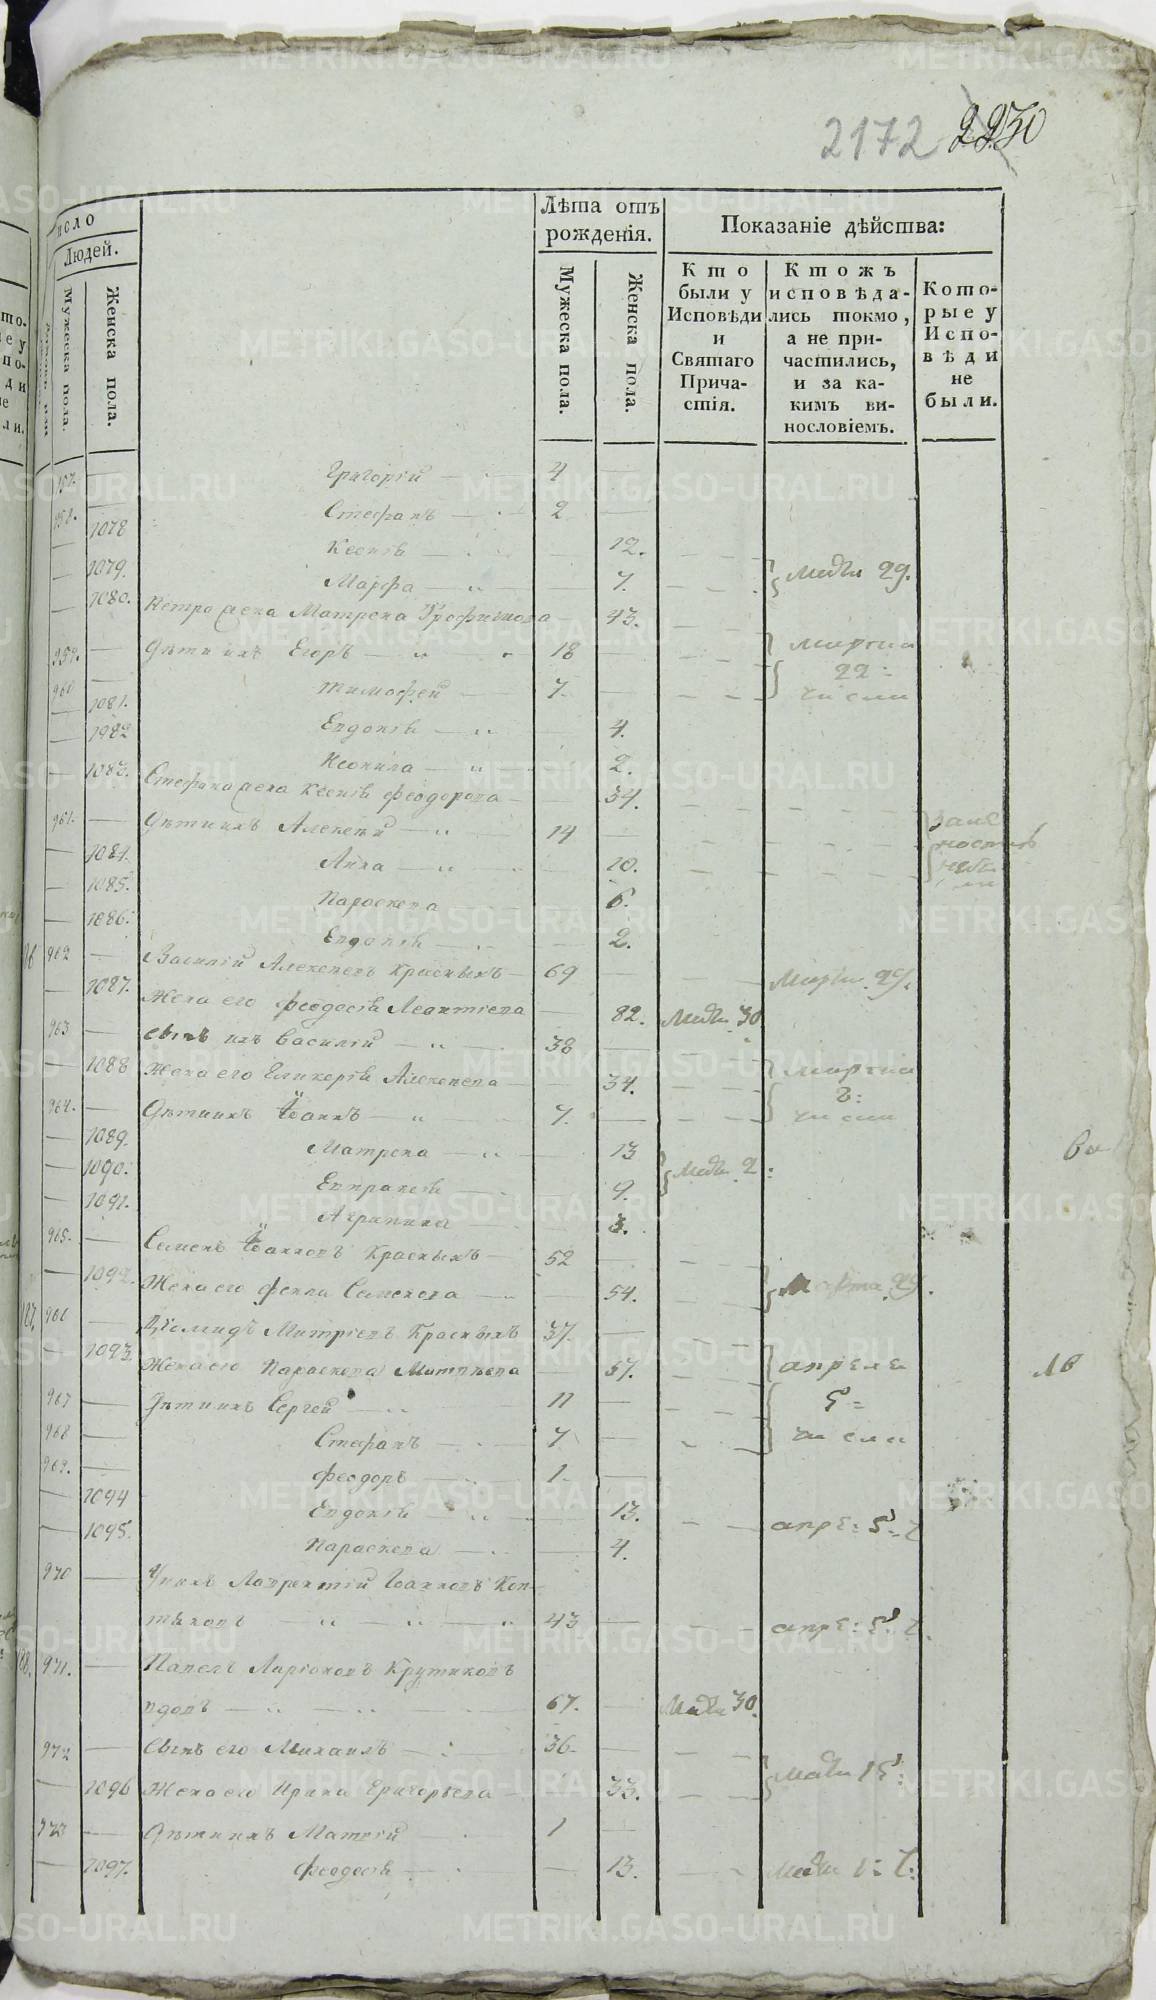 2172 2230
исло
Людей.
Мужеска пола.
Женска пола.
Лѣта отъ
рожденія.
Мужеска пола.
Женска пола.
Показаніе дѣйства:
Кто
были у
Исповѣди
и
Святаго
Прича-
стія.
Ктожъ
исповѣда-
лись токмо,
а не при-
частились,
и за ка-
кимъ ви-
нословіемъ.
Кото-
рые у
Испо-
вѣди
не
были.
957. Григорій 4
958. Стефанъ 2
1078 Ксенія 12.
1079. Марфа 7. Маія 29.
1080. Петра жена Матрена Трофимова 43.
959. Дѣти ихъ Егоръ 18 марта
960 Тимофей 7. 22:
1081. Евдокія 4. числа
1082 Неонила 2.
1083. Стефана жена Ксенія Феодорова 34.
961. Дѣти ихъ Алексѣй 14
1084. Анна 10.
1085. Параскева 6.
1086. Евдокія 2.
962 Василій Алексѣевъ Красныхъ 69 Марта. 29.
1087. Жена его Феодосія Леонтіева 82. Маія 30
963 Сынъ ихъ Василій 38
1088 Жена его Гликерія Алексѣева 34. марта
964. Дѣти ихъ Іоаннъ 7. числа
1089. Матрена 13
1090. Евпраксія 9. Маія 2:
1091. Агрипина 3.
965. Семенъ Іоанновъ Красныхъ 52
1092. Жена его Фекла Семенова 54. Марта 29.
187. 966 Діомидъ Митріевъ Красныхъ 37.
1093. Жена его Параскева Митріева 57. апреля
967 Дѣти ихъ Сергей 11
968 Стефанъ 7. числа
969. Феодоръ 1.
1094 Евдокія 13.
1095. Параскева 4.
970 Лаврентій Іоанновъ Коп-
тяковъ 43
188. 971. Павелъ Ларіоновъ Крутиковъ
вдовъ 67. Маія 30.
972 Сынъ его Михаилъ 36.
1096 Жена его Ирина Григорьева 33.
973 Дѣти ихъ Матвій 1
1097. Феодосія 13.